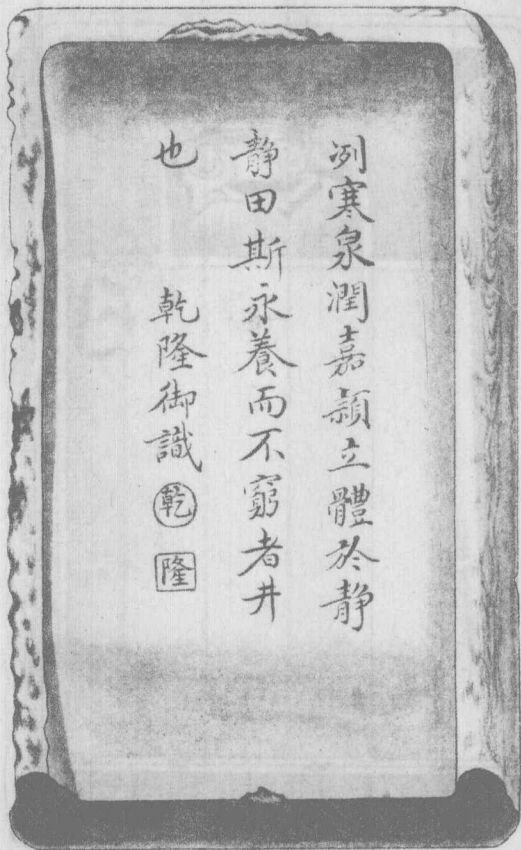 冽寒泉潤嘉穎立體於静
静田斯永養而不窮者井
也
乾隆御識 乾 隆